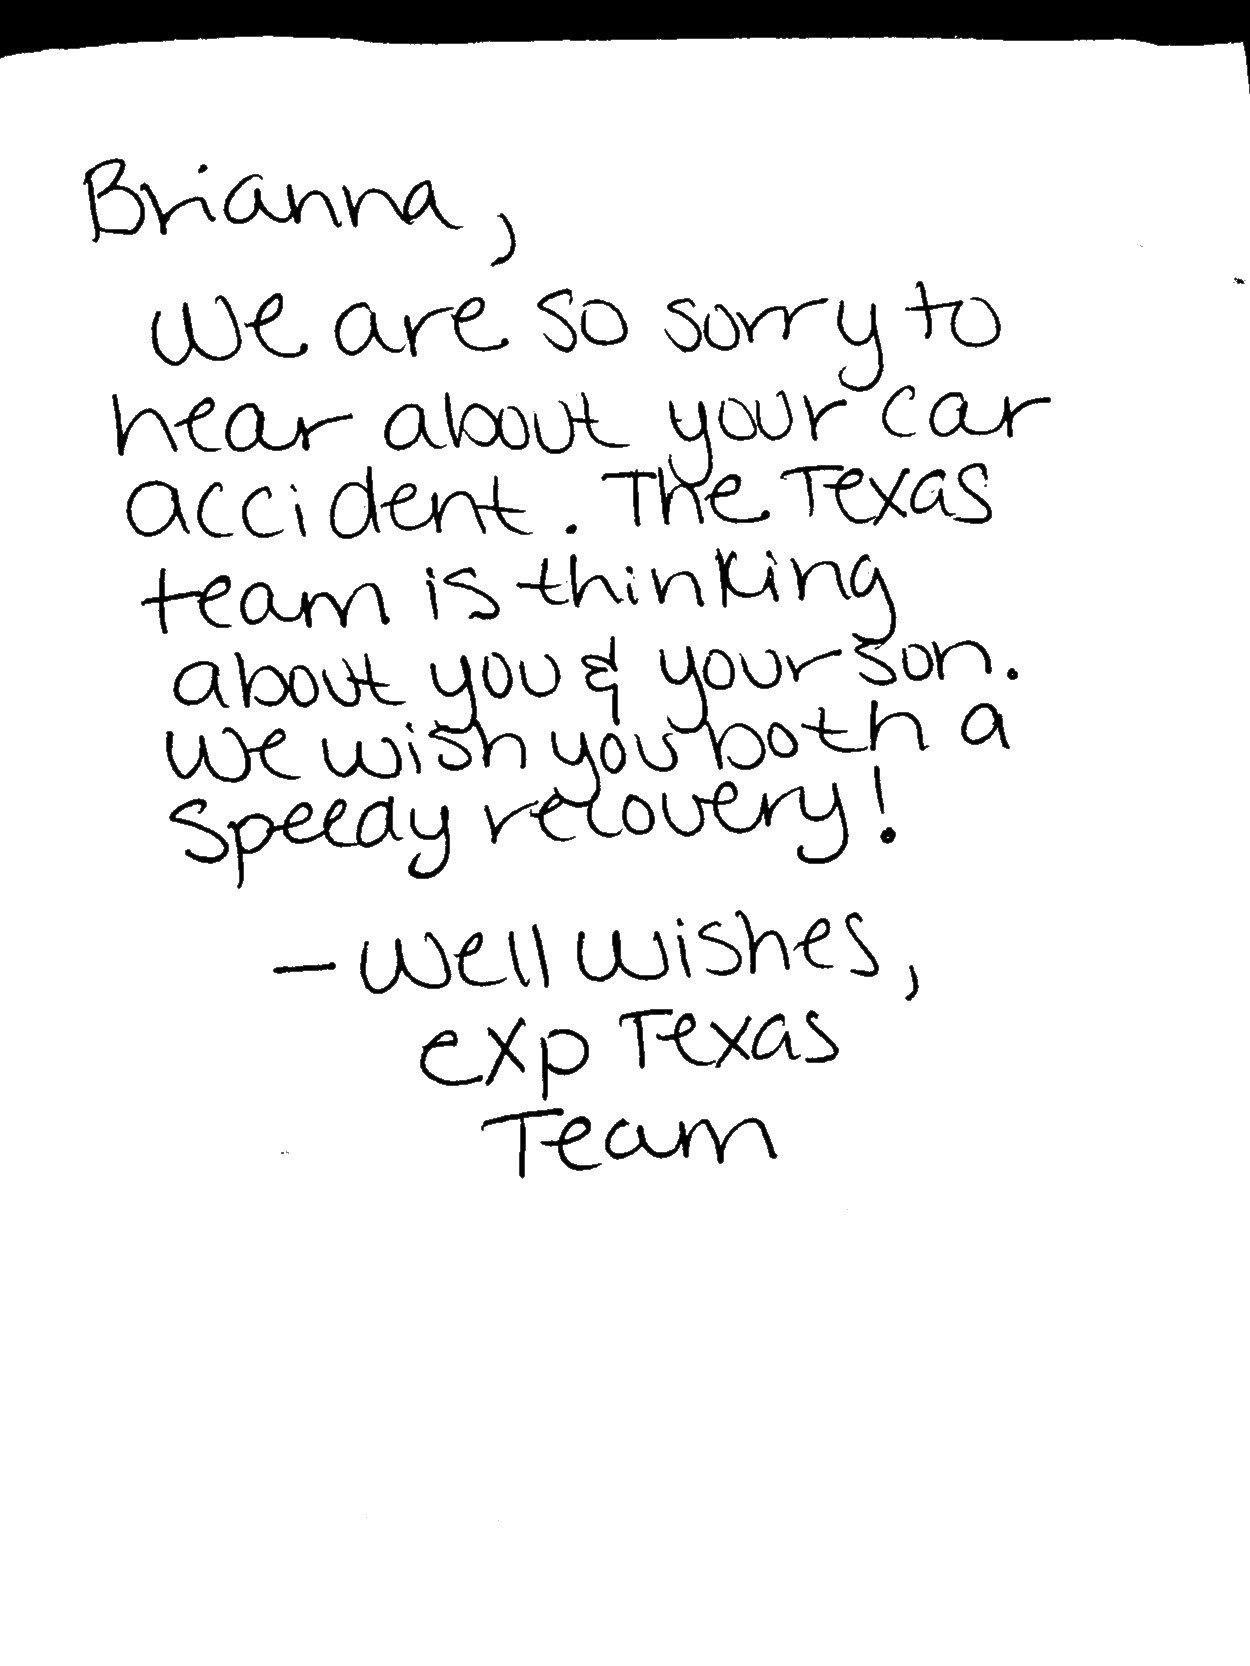 Brianna,
We are so sorry to
hear about your car
accident. The Texas
team is thinking
about you & your son.
We wish you both a
speedy recovery!
- Well wishes,
exp Texas
Team